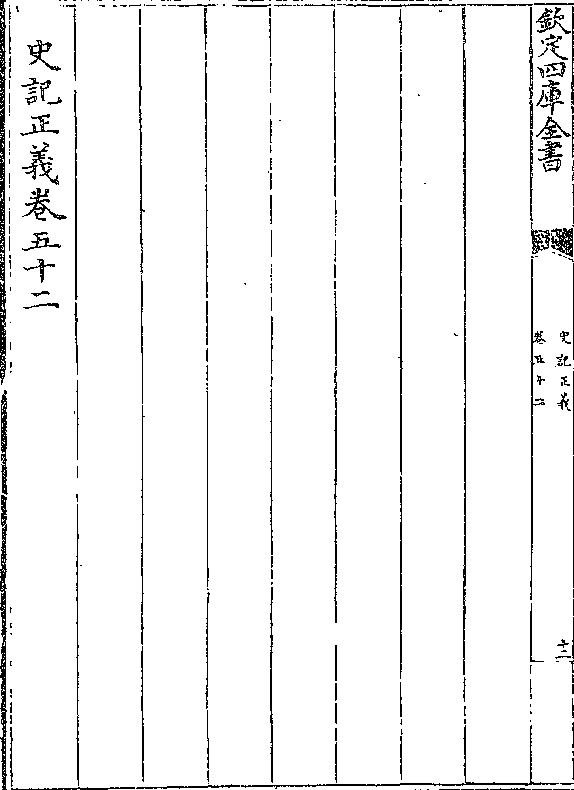 欽定四庫全書
史記正義
卷五十二
十二
史記正義卷五十二